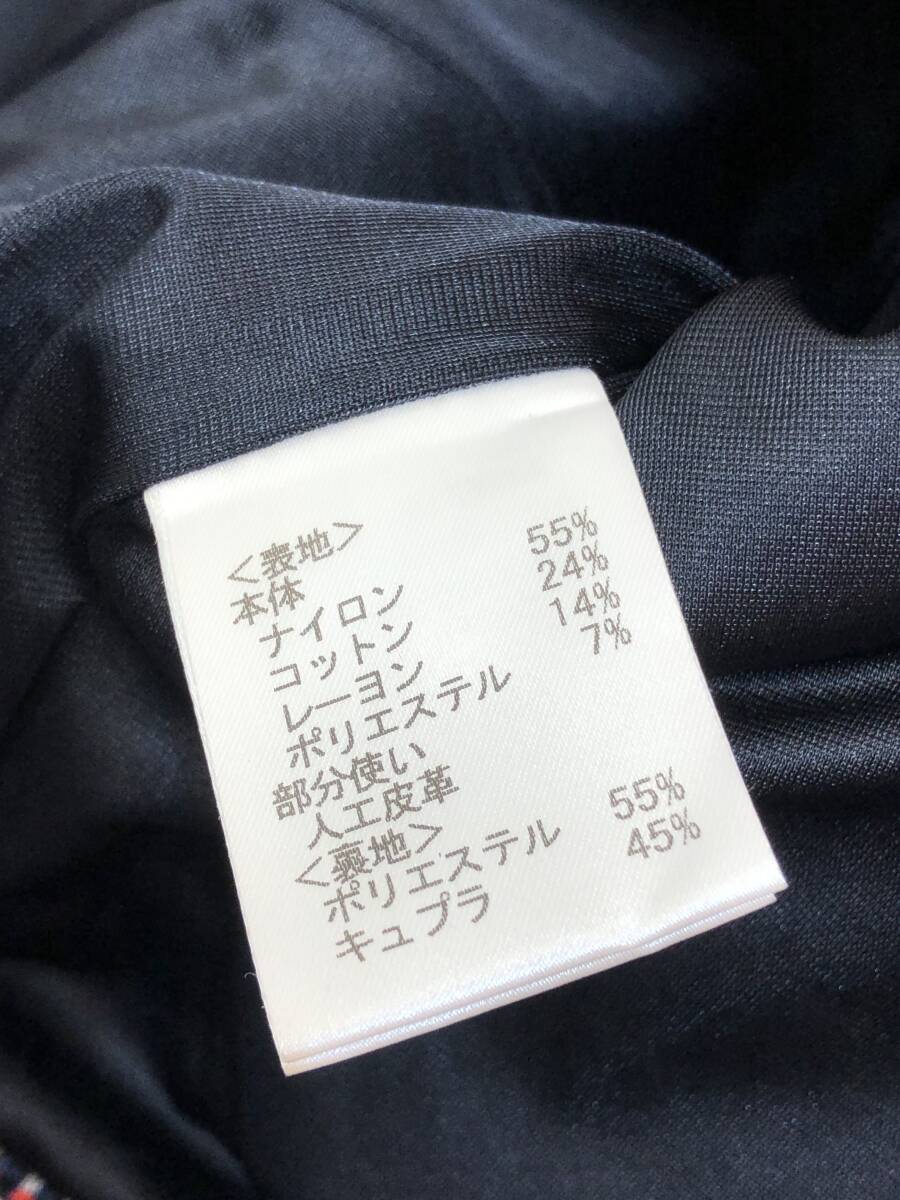 <表地>
本体
ナイロン 55%
コットン 24%
レーヨン 14%
ポリエステル 7%
部分使い
人工皮革
<裏地>
ポリエステル 55%
キュプラ 45%